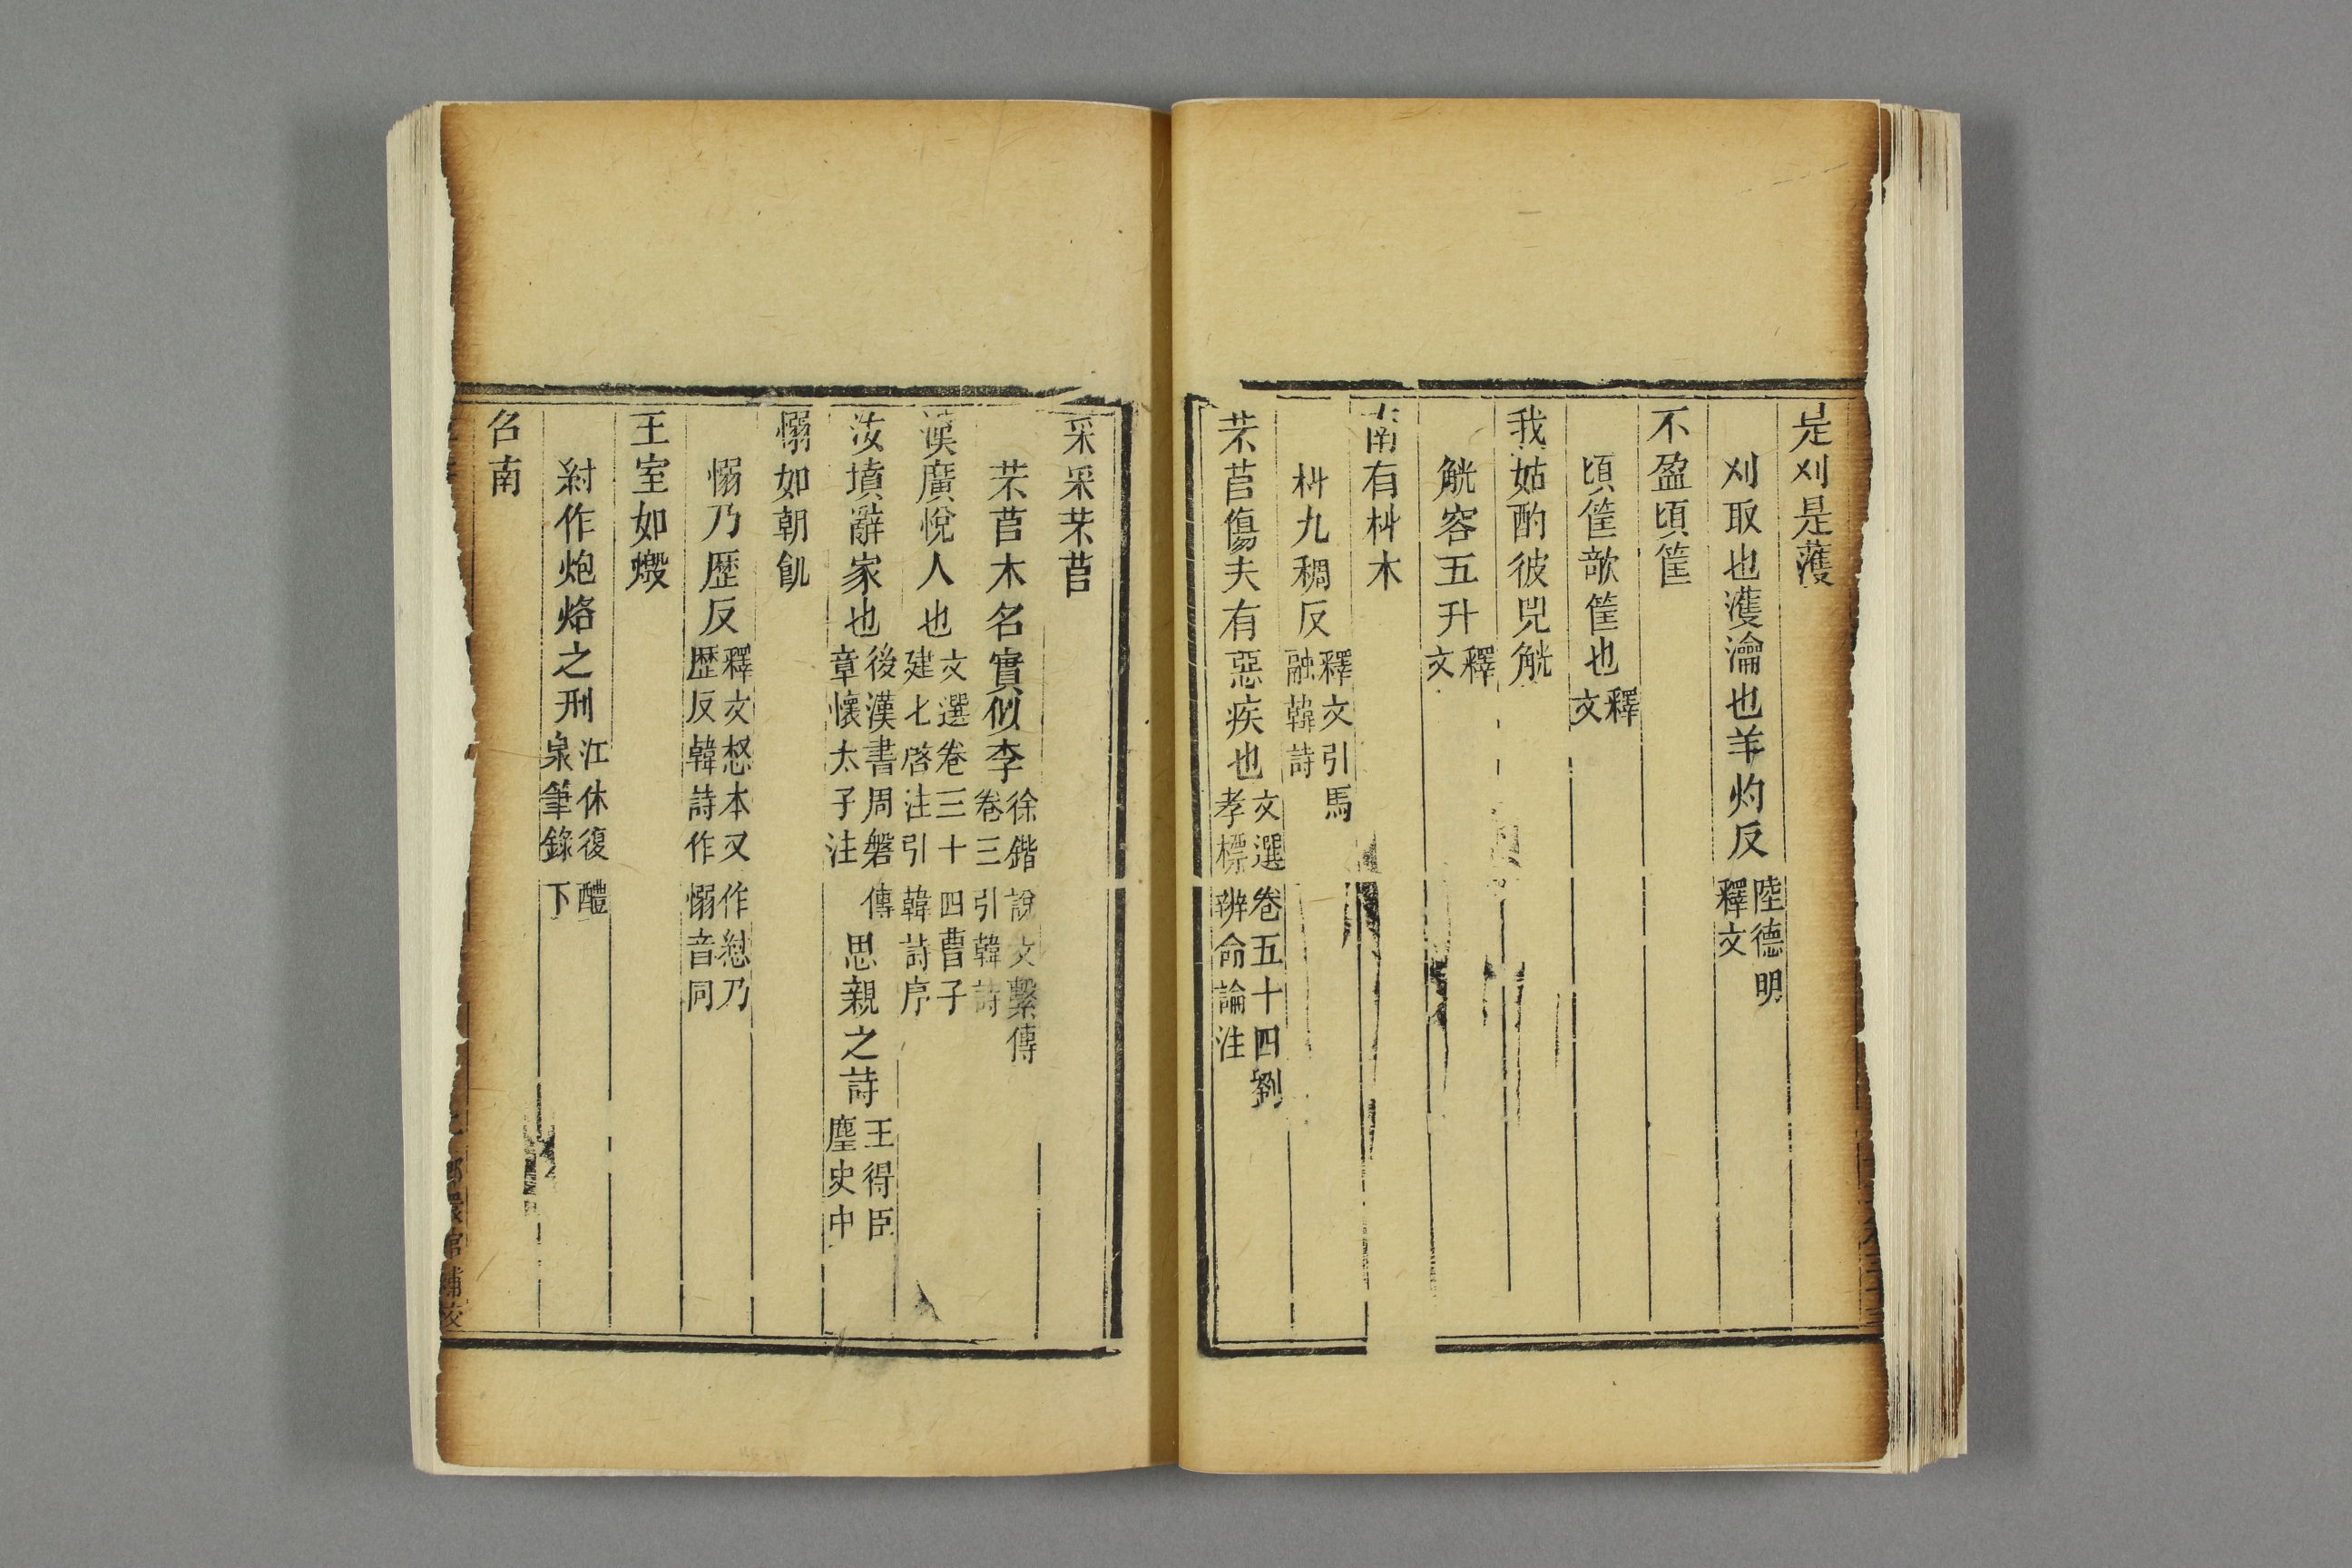 是刈是蒦
刈取也濩瀹也羊灼反陸德明釋文
不盈頃筐
頃筐欹筐也釋文
我姑酌彼兕觥
觥容五升釋文
南有朻木
朻九稠反釋文引馬融韓詩
芣苢傷夫有惡疾也文選卷五十四劉孝標辨命論注
采采芣苢
芣苢木名實似李徐鍇說文繫傳卷三引韓詩
漢廣悅人也文選卷三十四曹子建七啓注引韓詩序
汝墳辭家也後漢書周磐傳章懷太子注思親之詩王得臣麈史中
愵如朝飢
愵乃歷反釋文惄本又作㥾乃歷反韓詩作愵音同
王室如燬
紂作炮烙之刑江休復醴泉筆錄下
召南
館補校